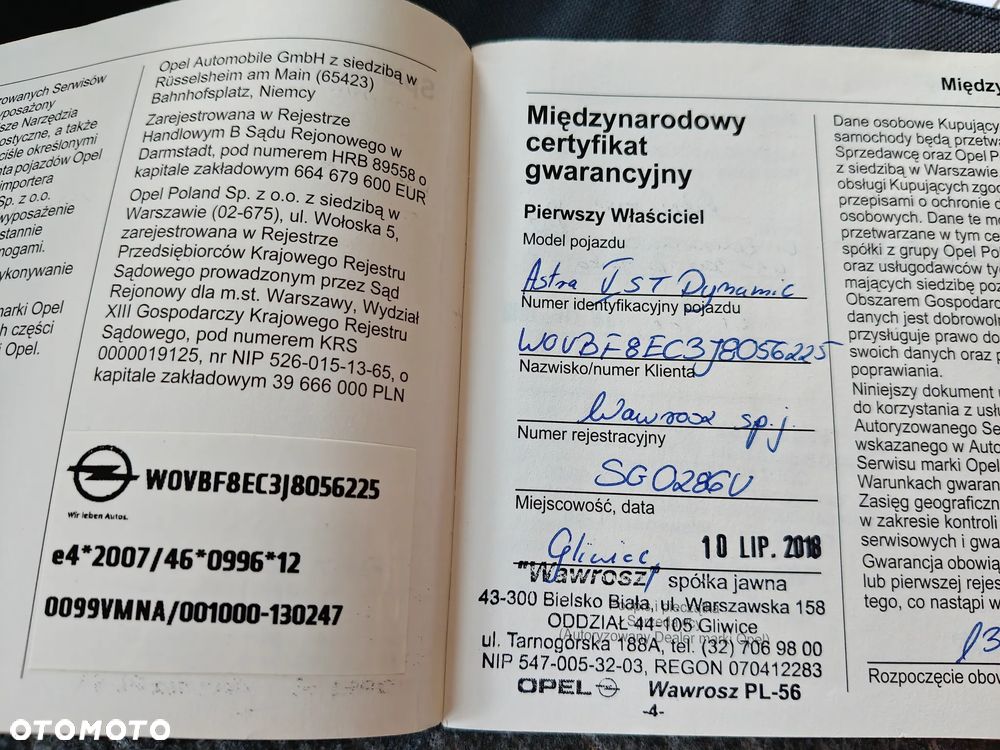 rowanych Serwisów
yposażony
sze Narzędzia
ostyczne, a także
ciśle określonymi
nta pojazdów Opel
importera
Sp. z o.o.
wyposażenie
stannie
mogami.
ykonywanie
marki Opel
h części
i Opel.
Opel Automobile GmbH z siedzibą w
Rüsselsheim am Main (65423)
Bahnhofsplatz, Niemcy
Zarejestrowana w Rejestrze
Handlowym B Sądu Rejonowego w
Darmstadt, pod numerem HRB 89558 o
kapitale zakładowym 664 679 600 EUR
Opel Poland Sp. z o.o. z siedzibą w
Warszawie (02-675), ul. Wołoska 5,
zarejestrowana w Rejestrze
Przedsiębiorców Krajowego Rejestru
Sądowego prowadzonym przez Sąd
Rejonowy dla m.st. Warszawy, Wydział
XIII Gospodarczy Krajowego Rejestru
Sądowego, pod numerem KRS
0000019125, nr NIP 526-015-13-65, o
kapitale zakładowym 39 666 000 PLN
W0VBF8EC3J8056225
Wir leben Autos.
e4*2007/46*0996*12
0099VMNA/001000-130247
Międzynarodowy
certyfikat
gwarancyjny
Pierwszy Właściciel
Model pojazdu
Astra V ST Dynamic
Numer identyfikacyjny pojazdu
W0VBF8EC3J8056225
Nazwisko/numer Klienta
Wawrosz sp.j.
Numer rejestracyjny
SGO286U
Miejscowość, data
Gliwice, 10 LIP. 2018
"Wawrosz" spółka jawna
43-300 Bielsko Biała, ul. Warszawska 158
ODDZIAŁ 44-105 Gliwice
ul. Tarnogórska 188A, tel. (32) 706 98 00
(Autoryzowany Dealer marki Opel)
NIP 547-005-32-03, REGON 070412283
OPEL Wawrosz PL-56
-4-
Między
Dane osobowe Kupując
samochody będą przetwa
Sprzedawcę oraz Opel P
z siedzibą w Warszawie
obsługi Kupujących zgod
przepisami o ochronie d
osobowych. Dane te mo
przetwarzane w tym ce
spółki z grupy Opel Po
oraz usługodawców ty
mających siedzibę poz
Obszarem Gospodarc
danych jest dobrowoln
przysługuje prawo do
swoich danych oraz p
poprawiania.
Niniejszy dokument u
do korzystania z usłu
Autoryzowanego Se
wskazanego w Auto
Serwisu marki Opel
Warunkach gwaran
Zasięg geograficzn
w zakresie kontroli
serwisowych i gwa
Gwarancja obowią
lub pierwszej rejes
tego, co nastąpi w
13
Rozpoczęcie obow
OTOMOTO